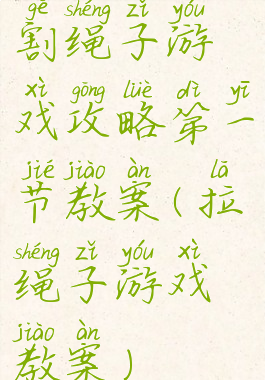 gē shéng zǐ yóu
割绳子游
xì gōng lüè dì yī
戏攻略第一
jié jiào àn lā
节教案(拉
shéng zǐ yóu xì
绳子游戏
jiào àn
教案)